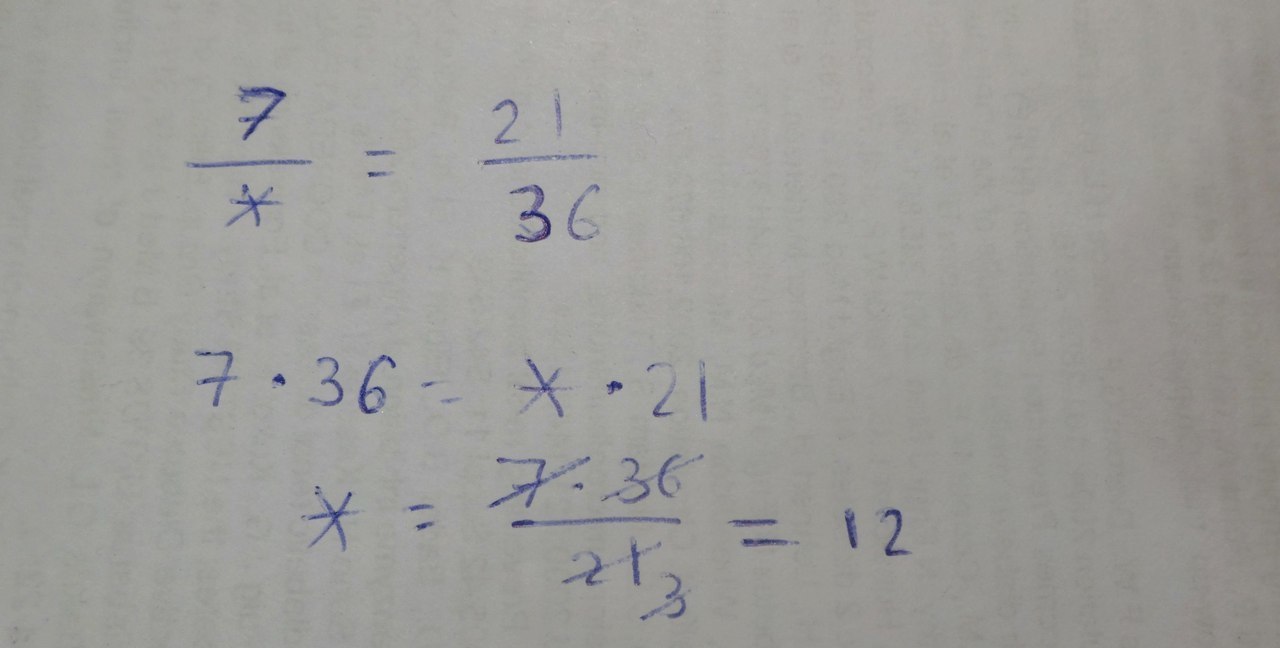 7/* = 21/36
7 · 36 = * · 21
* = 7 · 36/21 3 = 12